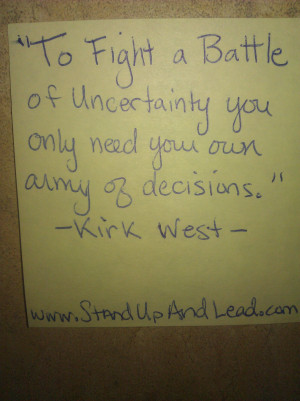 "To Fight a Battle
of Uncertainty you
only need your own
army of decisions."
-Kirk West-
www.StandUpAndLead.com